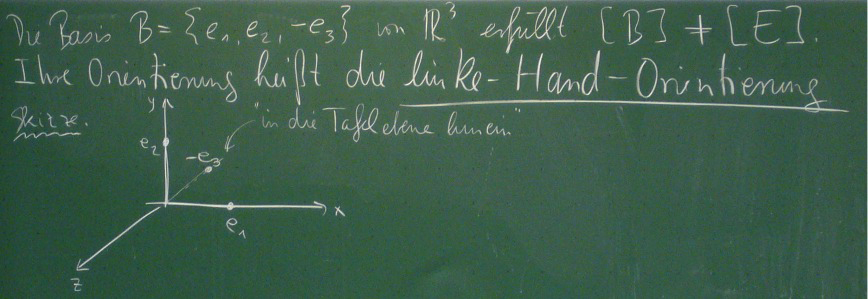 Die Basis B = {e₁, e₂, -e₃} von ℝ³ erfüllt [B] ≠ [E].
Ihre Orientierung heißt die linke-Hand-Orientierung
Skizze.
y
"in die Tafelebene hinein"
e₂
-e₃
x
e₁
z